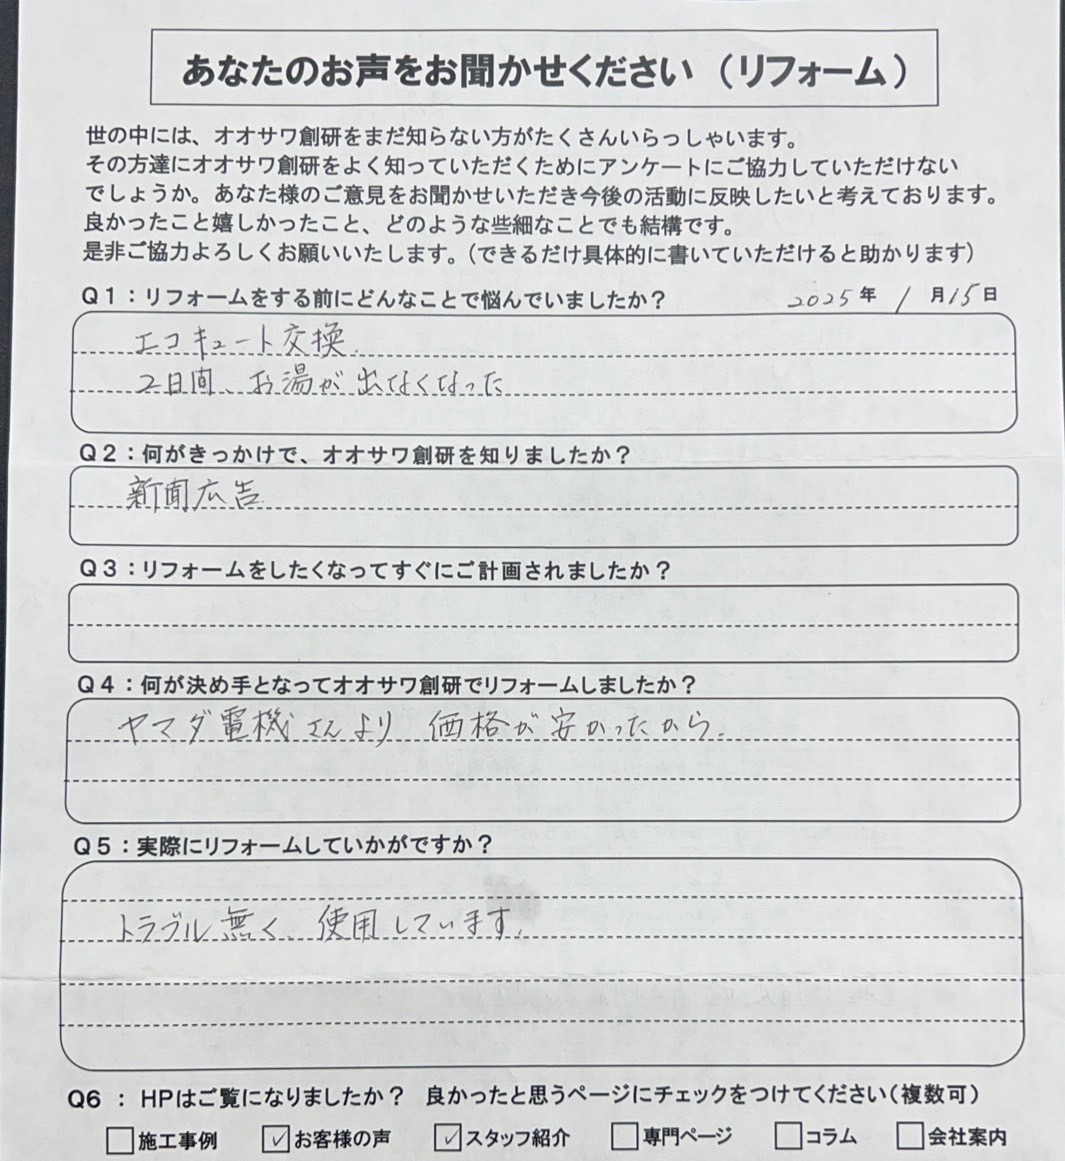 あなたのお声をお聞かせください（リフォーム）
世の中には、オオサワ創研をまだ知らない方がたくさんいらっしゃいます。
その方達にオオサワ創研をよく知っていただくためにアンケートにご協力していただけない
でしょうか。あなた様のご意見をお聞かせいただき今後の活動に反映したいと考えております。
良かったこと嬉しかったこと、どのような些細なことでも結構です。
是非ご協力よろしくお願いいたします。（できるだけ具体的に書いていただけると助かります）
Q1：リフォームをする前にどんなことで悩んでいましたか？ 2025年 1月15日
エコキュート交換.
2日間、お湯が出なくなった
Q2：何がきっかけで、オオサワ創研を知りましたか？
新聞広告
Q3：リフォームをしたくなってすぐにご計画されましたか？
Q4：何が決め手となってオオサワ創研でリフォームしましたか？
ヤマダ電機さんより、価格が安かったから.
Q5：実際にリフォームしていかがですか？
トラブル無く、使用しています.
Q6 ： HPはご覧になりましたか？ 良かったと思うページにチェックをつけてください（複数可）
□施工事例 ☑お客様の声 ☑スタッフ紹介 □専門ページ □コラム □会社案内